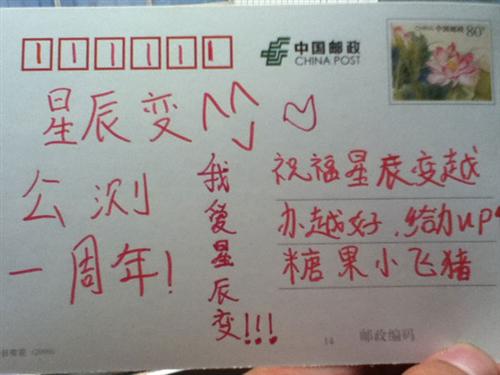 1 1 1 1 1 1
中国邮政
CHINA POST
中国邮政
80分
星辰变
公测
一周年!
我爱星辰变!!!
祝福星辰变越
办越好,给力up
糖果小飞猪
14
邮政编码